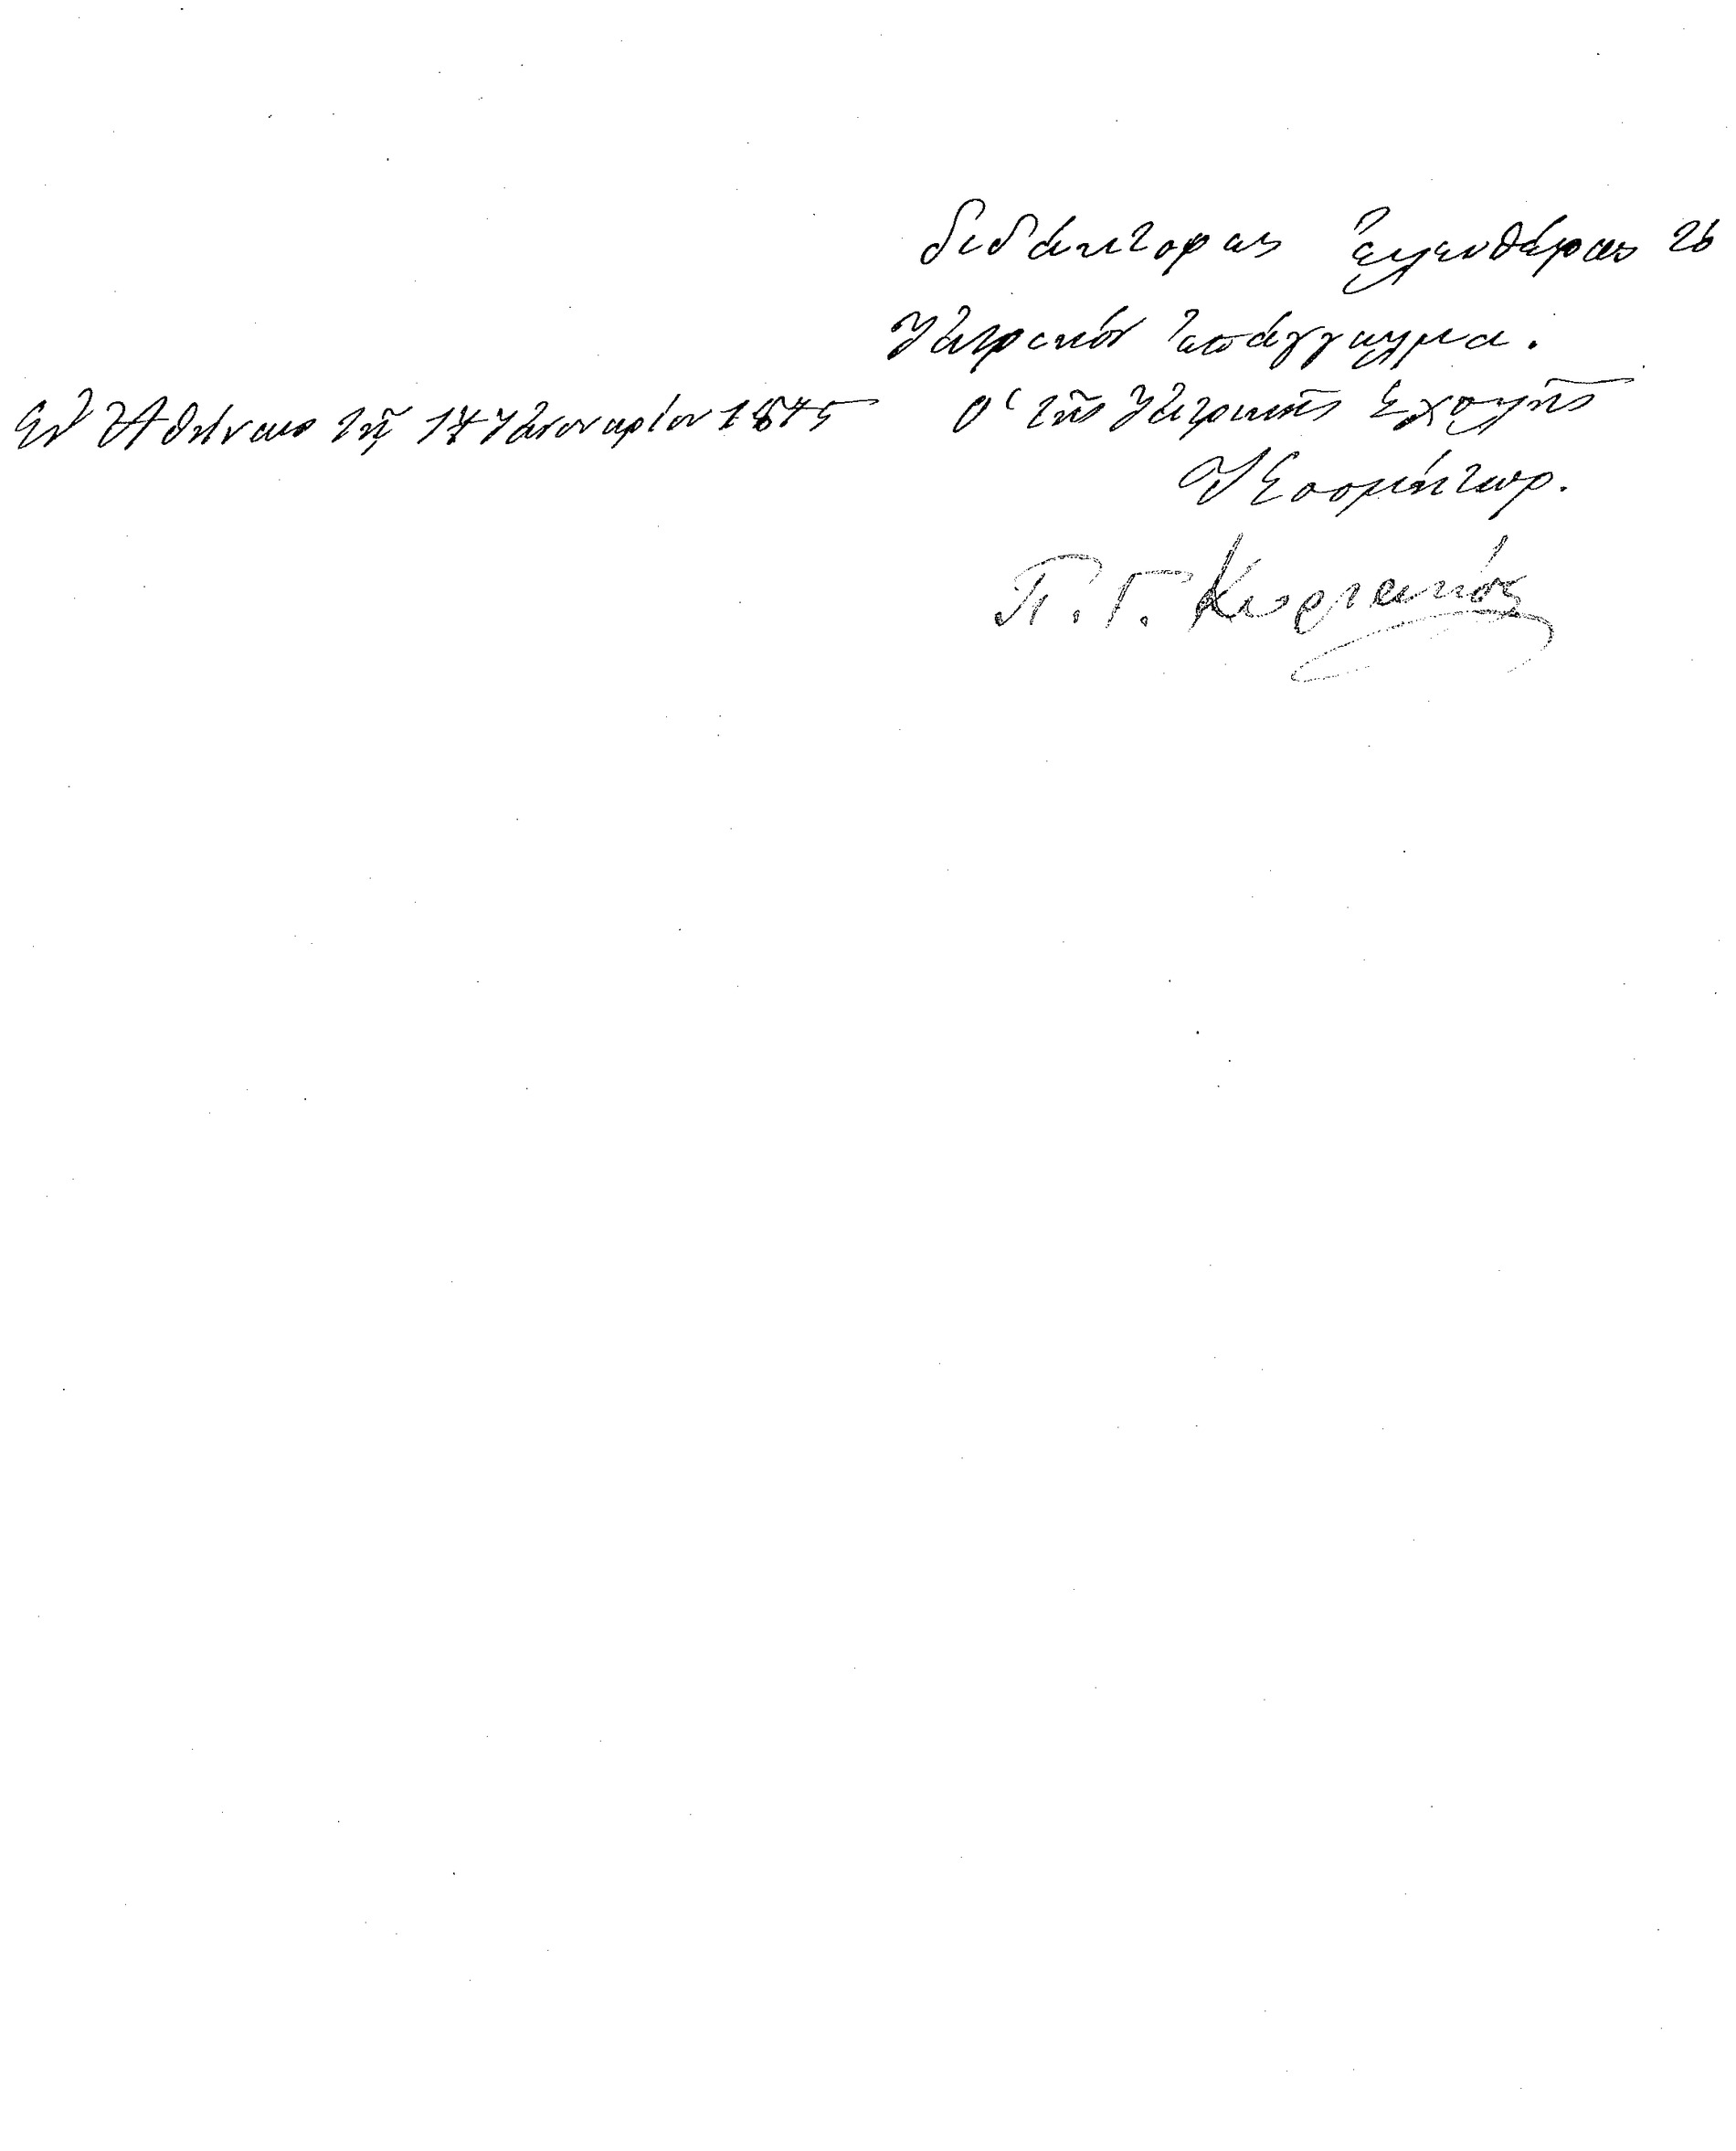 διδάκτορας ἐλευθέρως τὸ
Ἰατρικὸν ἐπάγγελμα.
Ἐν Ἀθήναις τῇ 17 Ἰανουαρίου 1875 Ὁ τῆς Ἰατρικῆς Σχολῆς
Κοσμήτωρ.
Π. Γ. Κυριακός